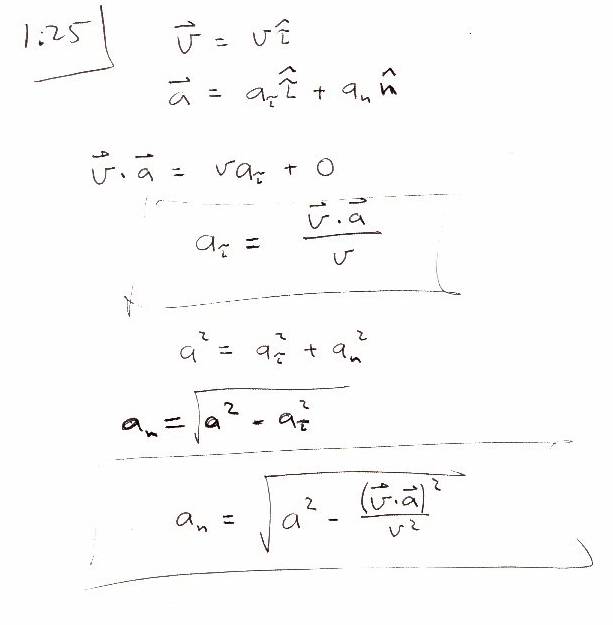 1.25
v⃗ = vτ̂
a⃗ = a_τ τ̂ + a_n n̂
v⃗·a⃗ = va_τ + 0
a_τ = (v⃗·a⃗)/v
a² = a_τ² + a_n²
a_n = √(a² - a_τ²)
a_n = √(a² - (v⃗·a⃗)²/v²)